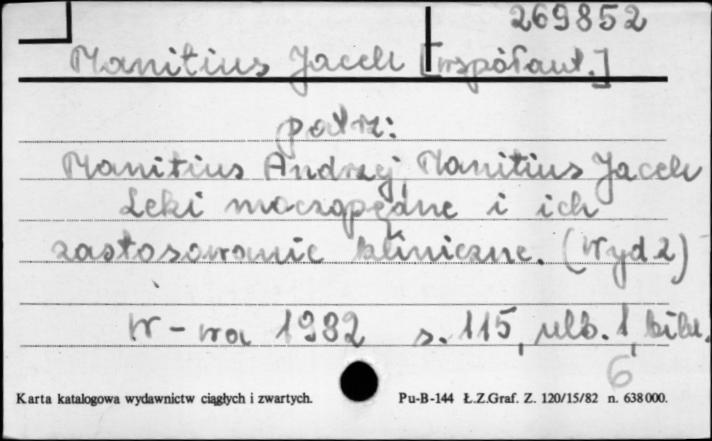 269852
Manitius Jacek [współaut.]
patrz:
Manitius Andrzej, Manitius Jacek
Leki moczopędne i ich
zastosowanie kliniczne. (Wyd 2)
W-wa 1982 s. 115, nlb. 1, bibl.
6
Karta katalogowa wydawnictw ciągłych i zwartych. Pu-B-144 Ł.Z.Graf. Z. 120/15/82 n. 638000.